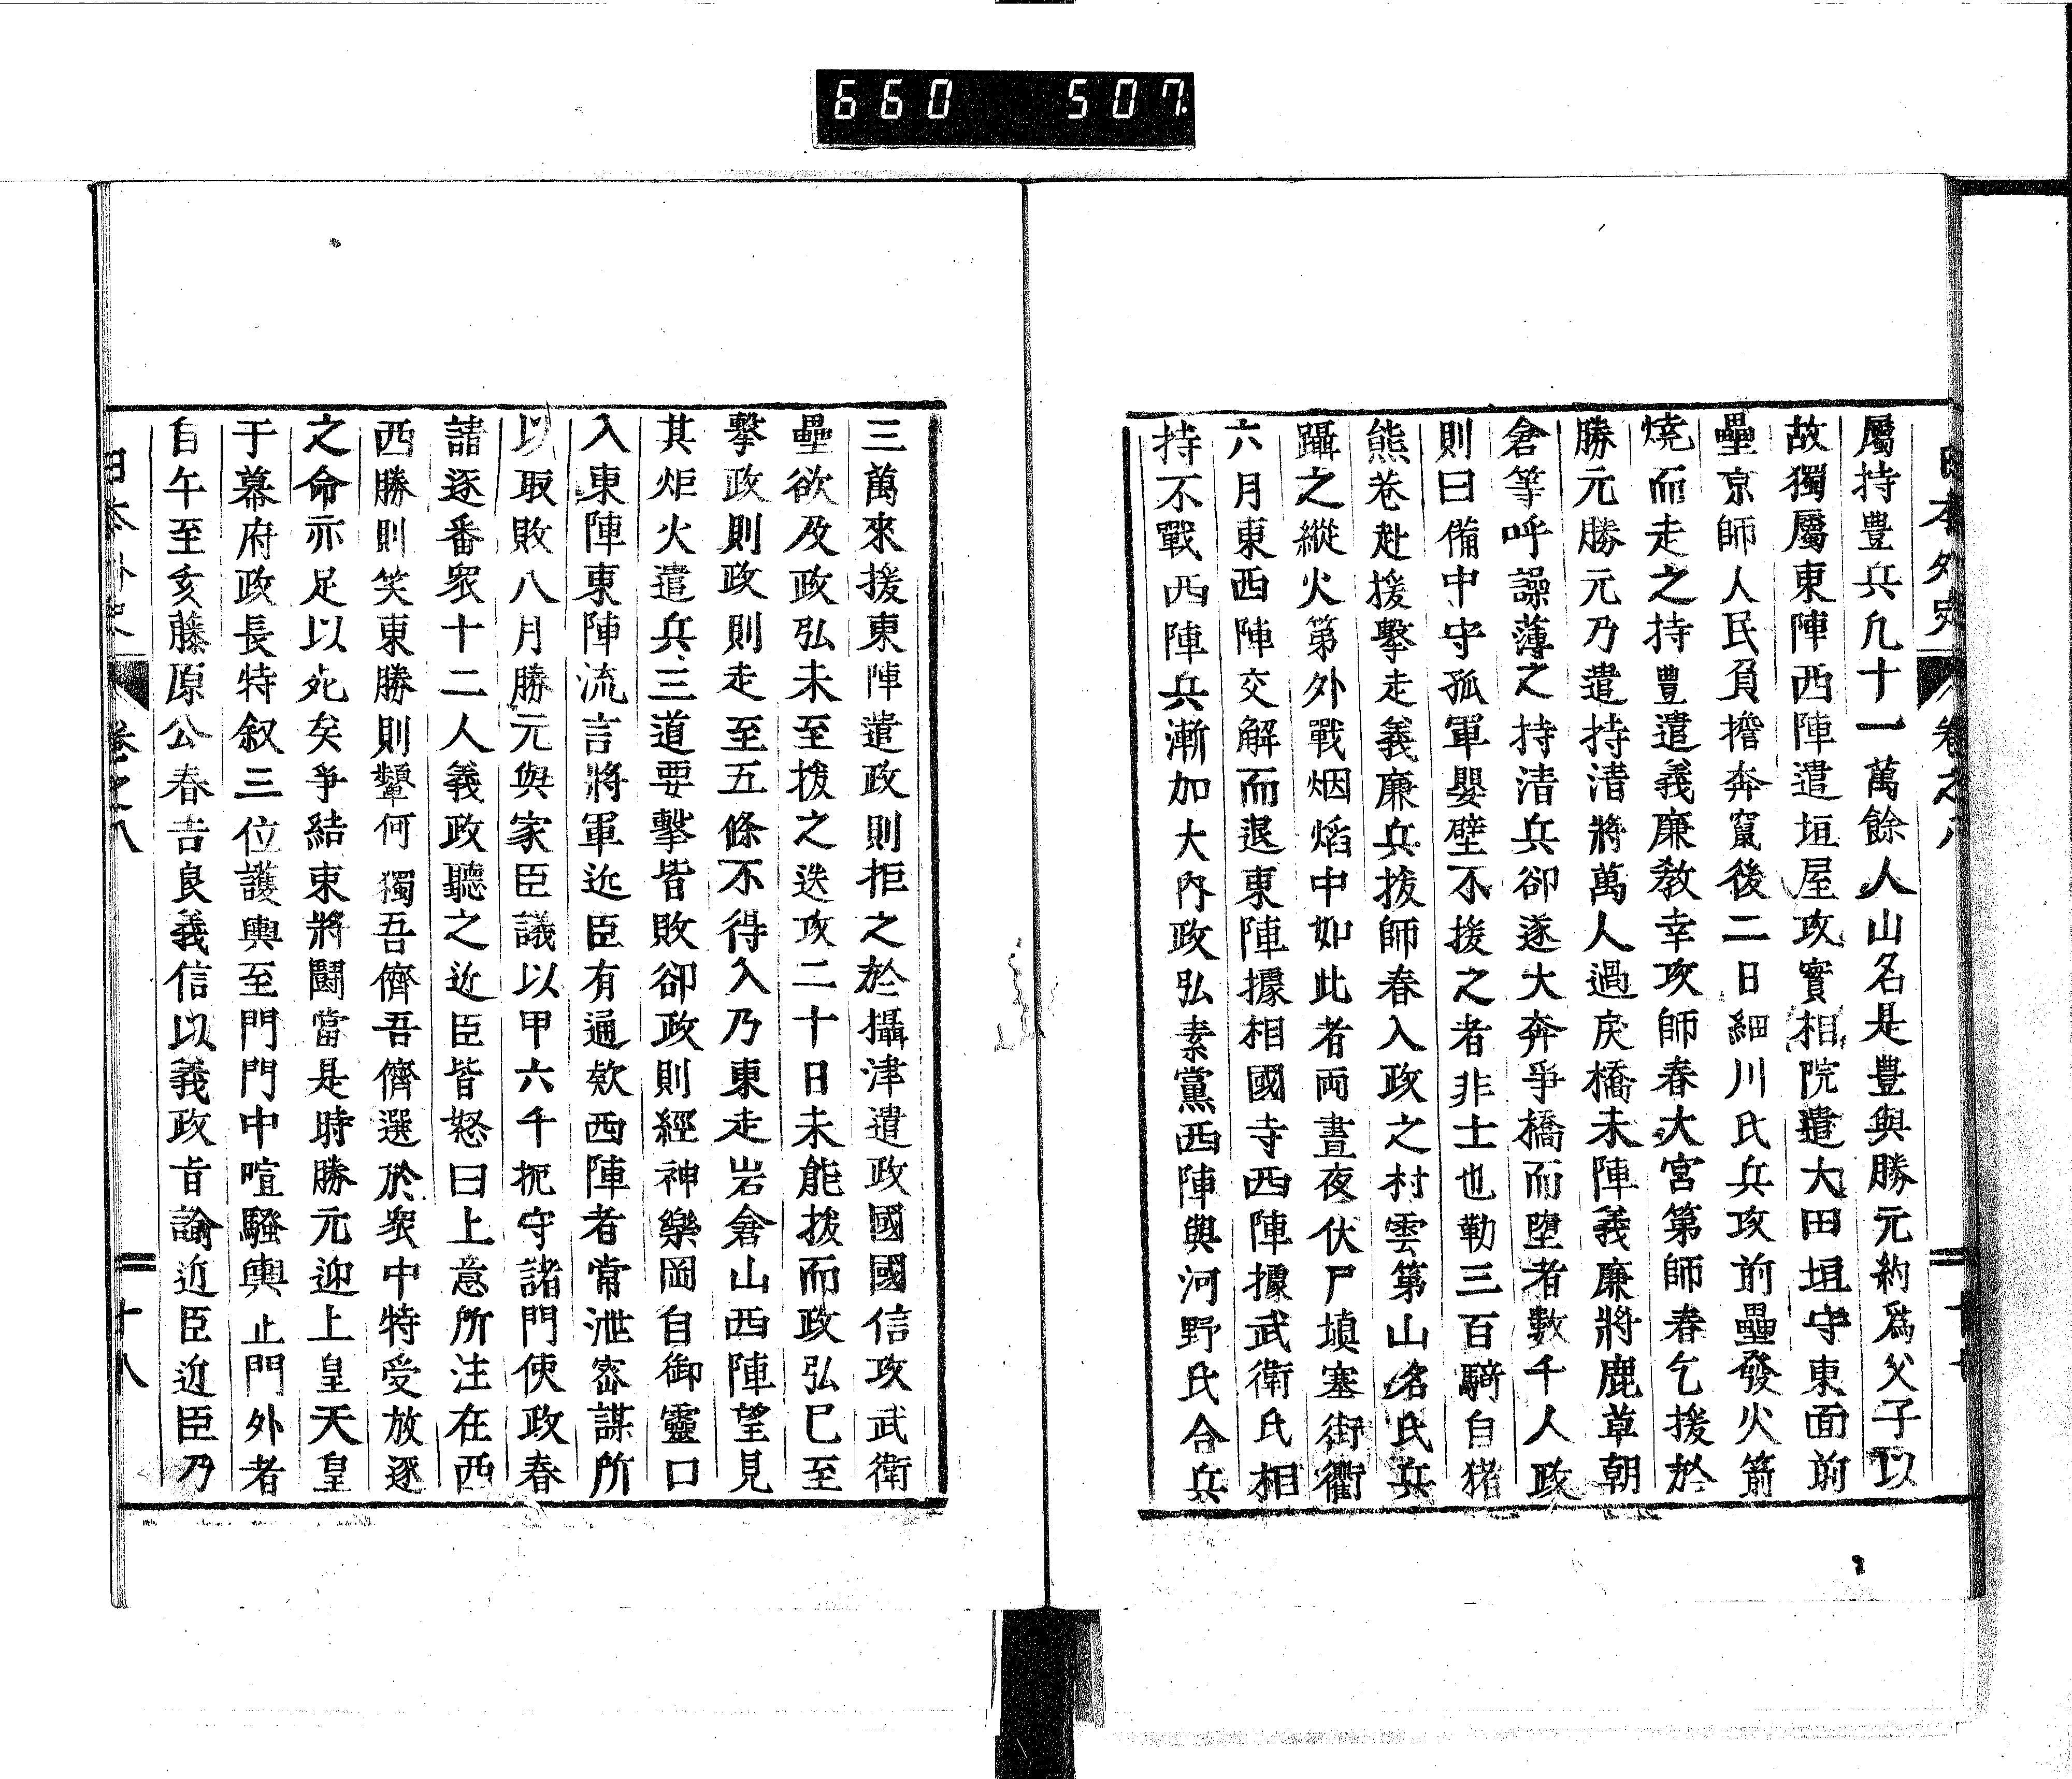 660 507.
日本外史 卷之八 十七
屬持豊兵凢十一萬餘人山名是豊與勝元約爲父子以
故獨屬東陣西陣遣垣屋攻實相院遣大田垣守東面前
壘京師人民負擔奔竄後二日細川氏兵攻前壘發火箭
燒而走之持豊遣義廉敎幸攻師春大宮第師春乞援於
勝元勝元乃遣持淸將萬人過戻橋未陣義廉將鹿草朝
倉等呼譟薄之持淸兵卻遂大奔爭橋而墮者數千人政
則曰備中守孤軍嬰壁不援之者非士也勒三百騎自猪
熊巷赴援擊走義廉兵拔師春入政之村雲第山名氏兵
躡之縱火第外戰烟焰中如此者両晝夜伏尸塡塞街衢
六月東西陣交解而退東陣據相國寺西陣據武衛氏相
持不戰西陣兵漸加大內政弘素黨西陣與河野氏合兵
三萬來援東陣遣政則拒之於攝津遣政國國信攻武衛
壘欲及政弘未至拔之迭攻二十日未能拔而政弘已至
擊政則政則走至五條不得入乃東走岩倉山西陣望見
其炬火遣兵三道要擊皆敗卻政則經神樂岡自御靈口
入東陣東陣流言將軍近臣有通欵西陣者常泄密謀所
以取敗八月勝元與家臣議以甲六千扼守諸門使政春
請逐番衆十二人義政聽之近臣皆怒曰上意所注在西
西勝則笑東勝則顰何獨吾儕吾儕選於衆中特受放逐
之命亦足以死矣爭結束將鬪當是時勝元迎上皇天皇
于幕府政長特叙三位護輿至門門中喧騷輿止門外者
自午至亥藤原公春吉良義信以義政旨諭近臣近臣乃
日本外史 卷之八 十八